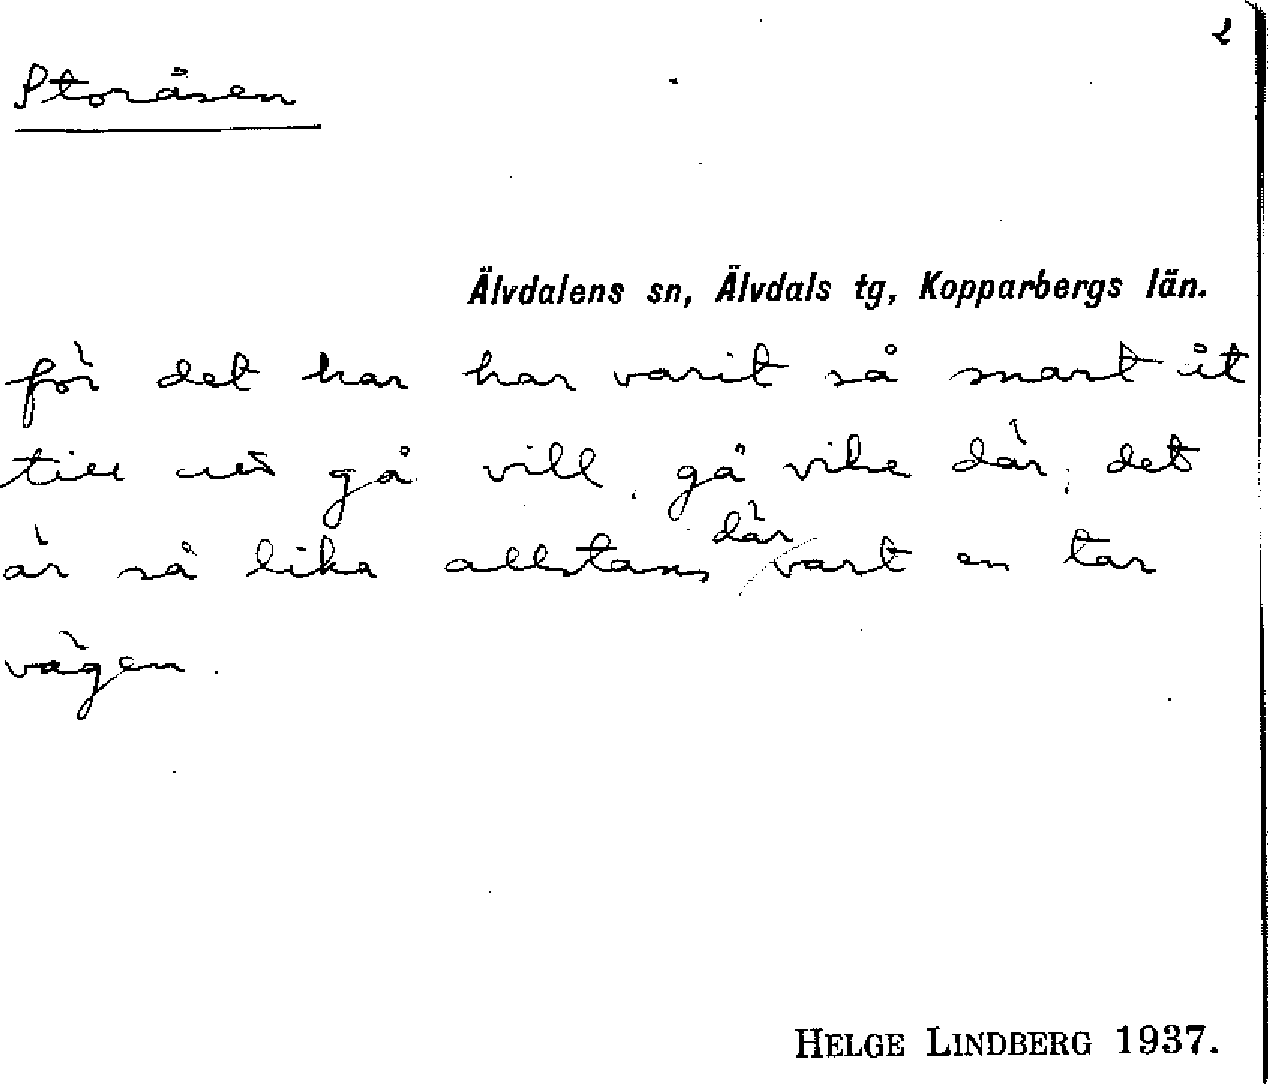 2
Storåsen
Älvdalens sn, Älvdals tg, Kopparbergs län.
för det har har varit så snart åt
till gå vill, gå vilse där; det
är så lika allstans där vart en tar
vägen.
HELGE LINDBERG 1937.